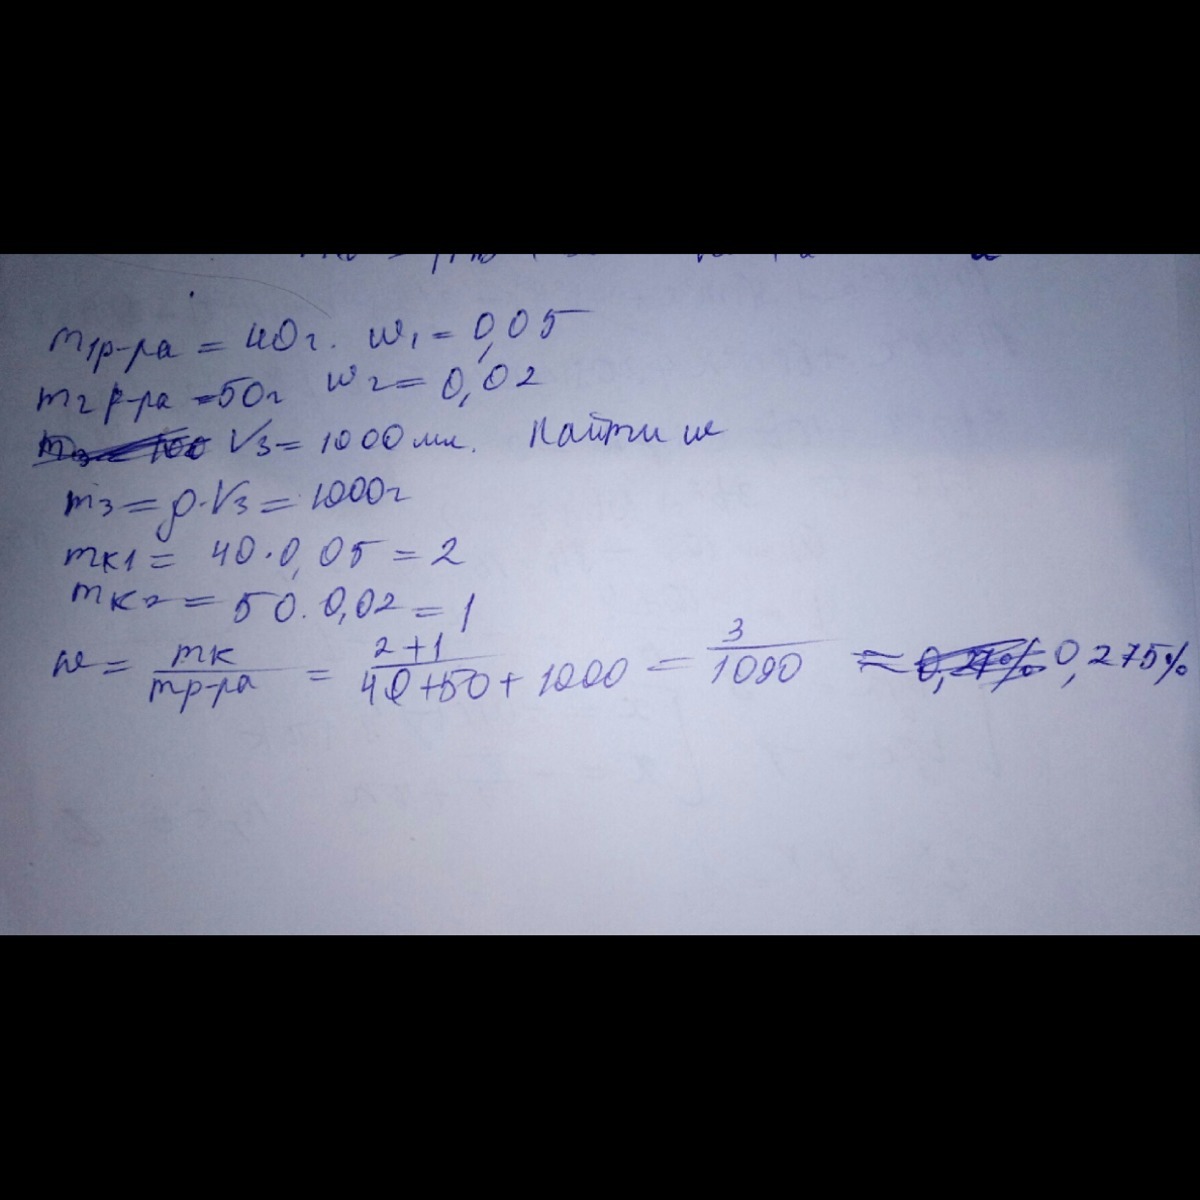 m1р-ра = 40г. w1 = 0,05
m2 р-ра = 50г w2 = 0,02
V3 = 1000 мл. Найти w
m3 = ρ·V3 = 1000г
mк1 = 40·0,05 = 2
mк2 = 50·0,02 = 1
w = mк/mр-ра = 2+1/40+50+1000 = 3/1090 ≈ 0,27% 0,275%